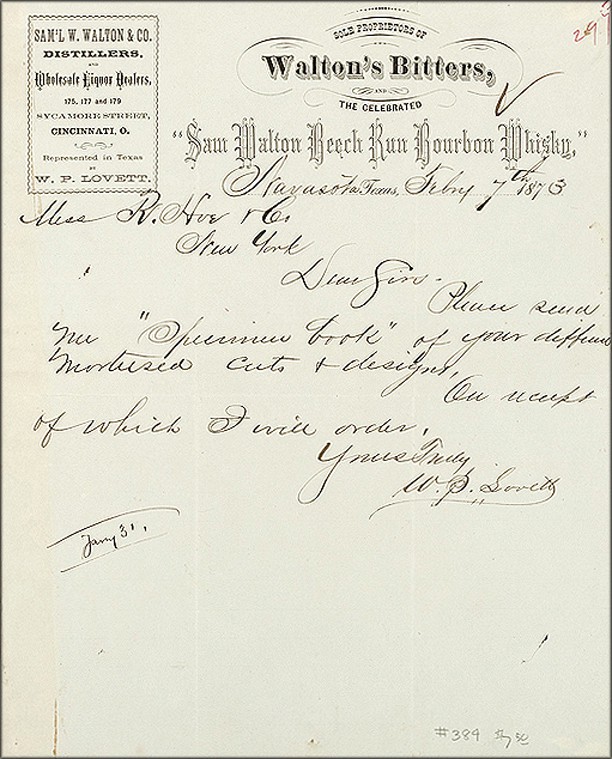 SAM'L W. WALTON & CO.
DISTILLERS,
AND
Wholesale Liquor Dealers,
175, 177 and 179
SYCAMORE STREET,
CINCINNATI, O.
Represented in Texas
BY
W. P. LOVETT.
SOLE PROPRIETORS OF
Walton's Bitters,
AND
THE CELEBRATED
"Sam Walton Beech Run Bourbon Whisky,"
Navasota Texas, Feby 7th 1873
Mess R. Hoe & Co
New York
Dear Sirs.
Please send
me "Specimen book" of your different
Mortised cuts & designs,
On receipt
of which I will order.
Yours Truly
W. P. Lovett
Jany 31,
#384